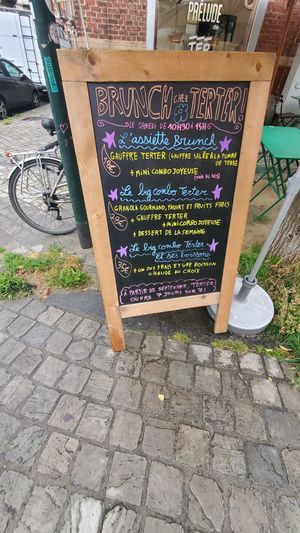 PRÉLUDE
DE
TER
BRUNCH chez TERTER!
LE SAMEDI DE 10H30 À 15H
L'assiette Brunch
GAUFFRE TERTER (GAUFFRE SALÉE À LA POMME
DE TERRE
+ MINI COMBO JOYEUSE
Le big combo Terter
GRANOLA GOURMAND, YAOURT ET FRUITS FRAIS
+ GAUFFRE TERTER
+ MINI COMBO JOYEUSE
+ DESSERT DE LA SEMAINE
Le big combo Terter
et ses boissons
+ UN JUS FRAIS ET UNE BOISSON
CHAUDE AU CHOIX
À PARTIR DE SEPTEMBRE, TERTER
OUVRE 7 JOURS SUR 7!